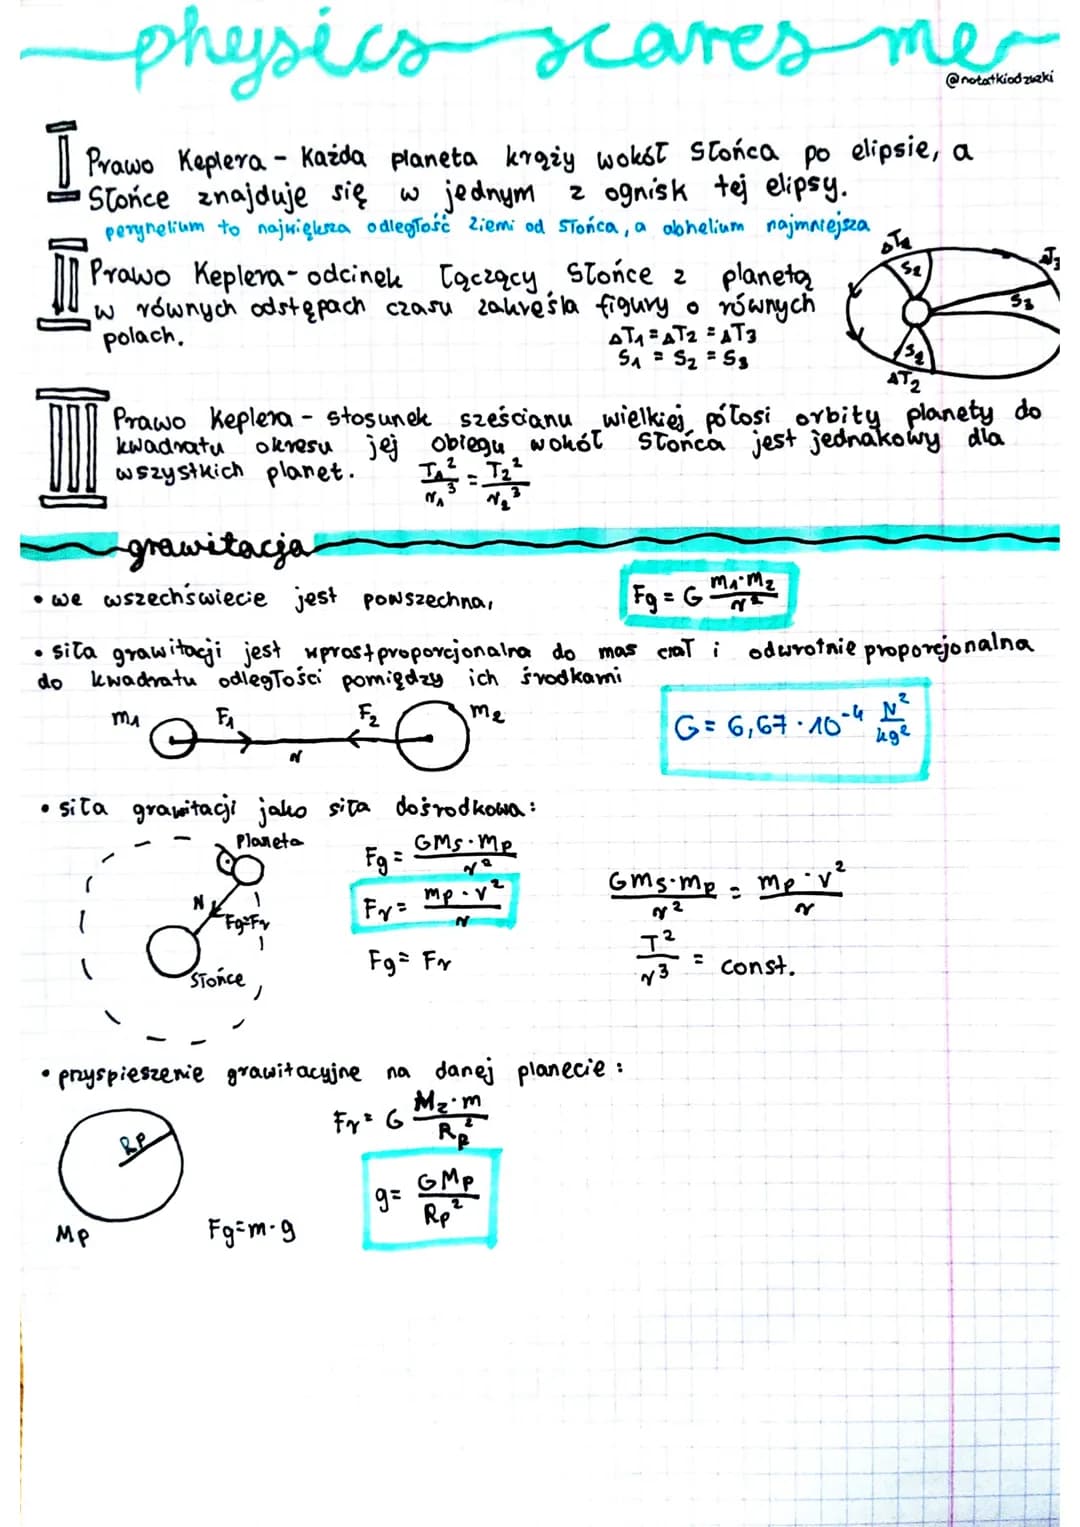 physics scares me
@notatkiodzuzki
I Prawo Keplera - Każda planeta krąży wokół Słońca po elipsie, a
Słońce znajduje się w jednym z ognisk tej elipsy.
peryhelium to największa odległość Ziemi od Słońca, a abhelium najmniejsza
II Prawo Keplera - odcinek łączący Słońce z planetą
w równych odstępach czasu zakreśla figury o równych
polach.
ΔT1 = ΔT2 = ΔT3
S1 = S2 = S3
S2
S3
S2
ΔT2
III Prawo Keplera - stosunek sześcianu wielkiej półosi orbity planety do
kwadratu okresu jej obiegu wokół Słońca jest jednakowy dla
wszystkich planet.
T1²/r1³ = T2²/r2³
grawitacja
• we wszechświecie jest powszechna,
Fg = G m1·m2/r²
• siła grawitacji jest wprostproporcjonalna do mas ciał i odwrotnie proporcjonalna
do kwadratu odległości pomiędzy ich środkami
m1 F1 F2 m2
r
G = 6,67 · 10⁻⁴ N²/kg²
• siła grawitacji jako siła dośrodkowa:
Planeta
r
Fg=Fr
Słońce
Fg = GMs·mp/r²
Fr = mp·v²/r
Fg = Fr
GMs·mp/r² = mp·v²/r
T²/r³ = const.
• przyspieszenie grawitacyjne na danej planecie:
Rp
Mp
Fg=m·g
Fr = G Mz·m/Rp²
g = GMp/Rp²